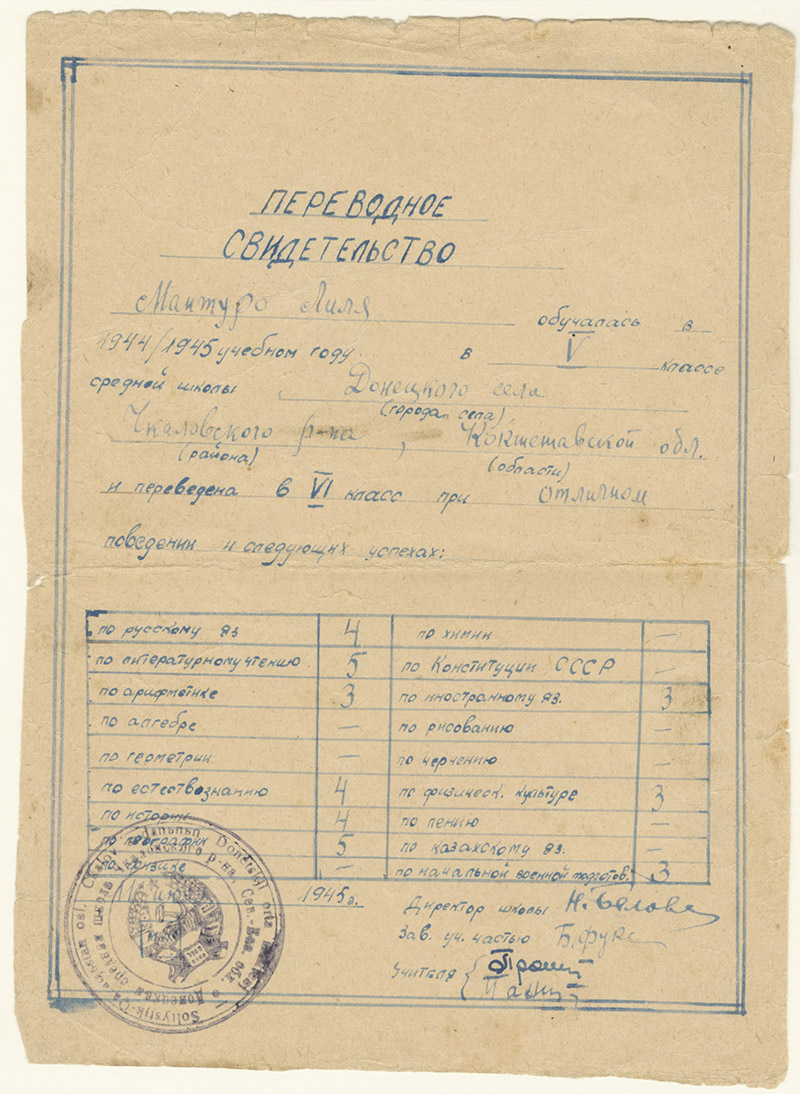 ПЕРЕВОДНОЕ
СВИДЕТЕЛЬСТВО
Мантуро Лиля обучалась в
1944/1945 учебном году в V классе
средней школы Донецкого села
(города, села)
Чкаловского р-на, Кокчетавской обл.
(района) (области)
и переведена в VI класс при отличном
поведении и следующих успехах:
по русскому яз 4 по химии —
по литературному чтению 5 по Конституции СССР —
по арифметике 3 по иностранному яз. 3
по алгебре — по рисованию —
по геометрии — по черчению —
по естествознанию 4 по физическ. культуре 3
по истории 4 по пению —
по географии 5 по казахскому яз. —
по физике — по начальной военной подготов. 3
1945г.
Директор школы Н. Белова
Зав. уч. частью Б. Фукс
Учителя